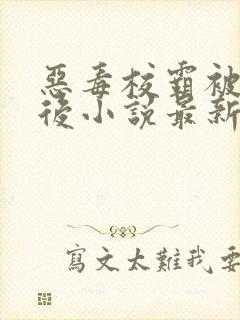 惡毒校霸被
後小說最新
寫文太難我要